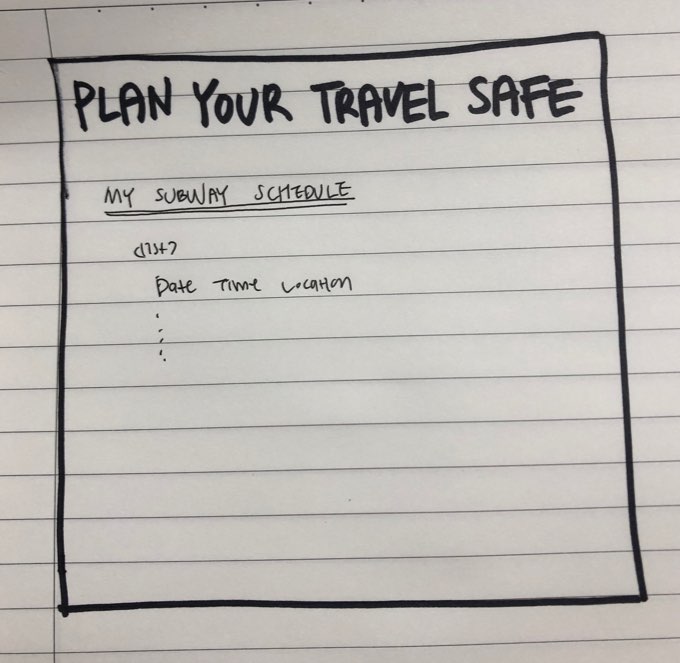 PLAN YOUR TRAVEL SAFE
MY SUBWAY SCHEDULE
<list>
Date Time Location